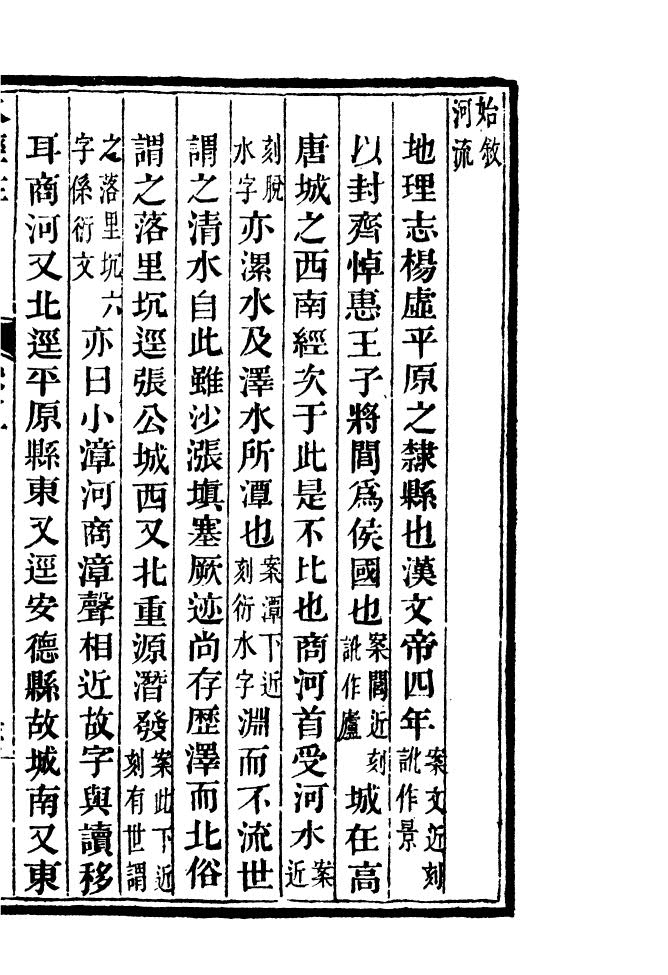 始敘
河流
地理志楊虛平原之隸縣也漢文帝四年案文近刻訛作景
以封齊悼惠王子將閭爲侯國也案閭近刻訛作廬城在高
唐城之西南經次于此是不比也商河首受河水案近
刻脫水字亦漯水及澤水所潭也案潭下近刻衍水字淵而不流世
謂之清水自此雖沙漲填塞厥迹尚存歷澤而北俗
謂之落里坈逕張公城西又北重源潛發案此下近刻有世謂
之落里坈六字係衍文亦曰小漳河商漳聲相近故字與讀移
耳商河又北逕平原縣東又逕安德縣故城南又東